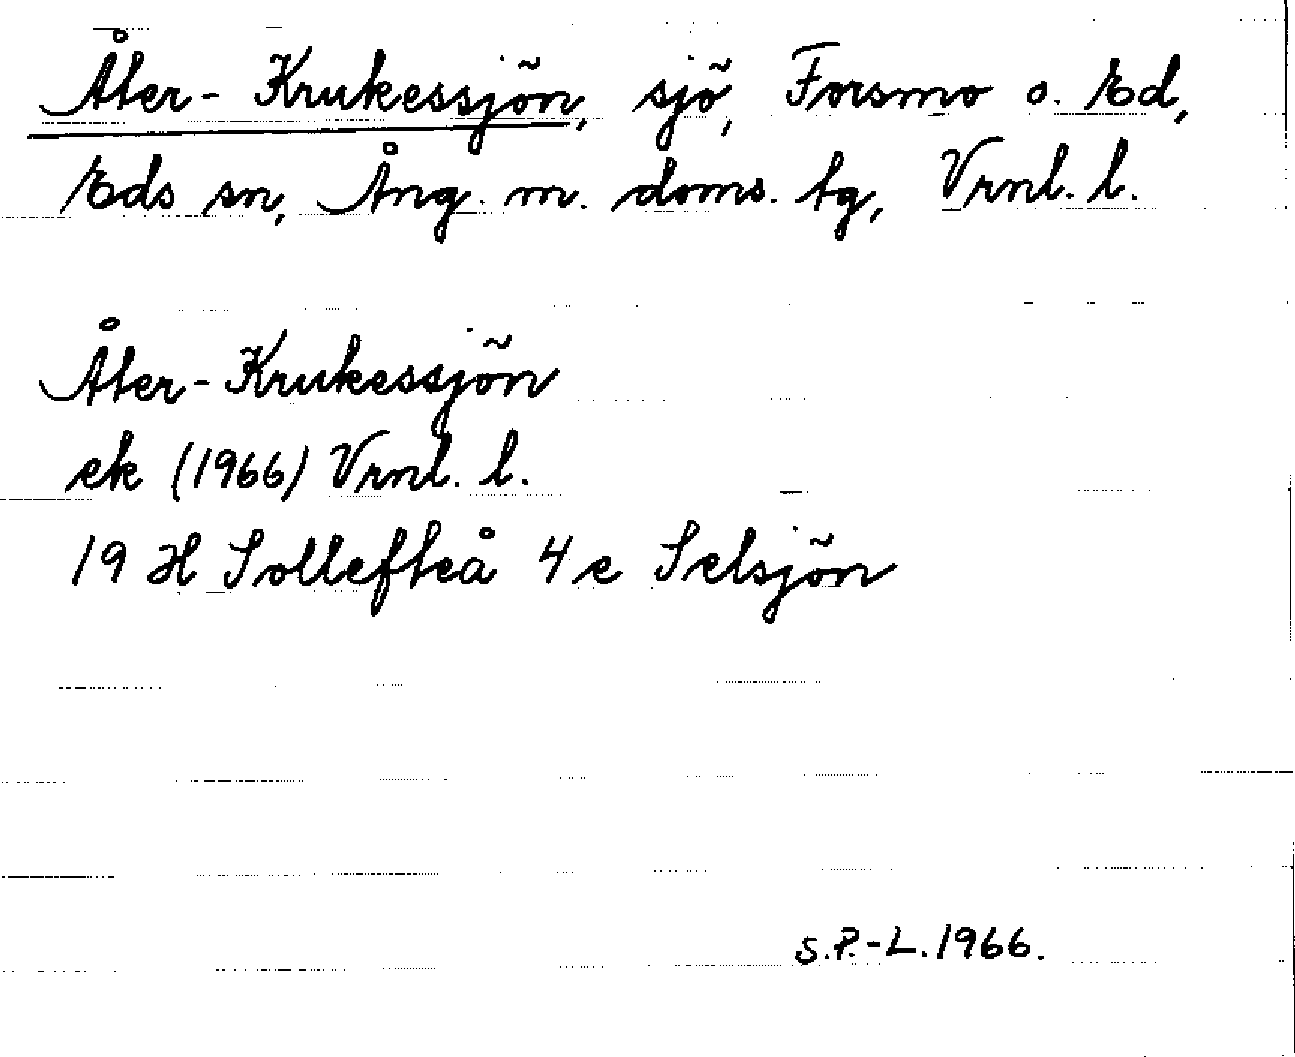 Åter-Krukessjön, sjö, Forsmo o. Ed,
Eds sn, Ång. m. doms. tg, Vrnl. l.
Åter-Krukessjön
ek (1966) Vrnl. l.
19 H Sollefteå 4 e Selsjön
S.P.-L. 1966.